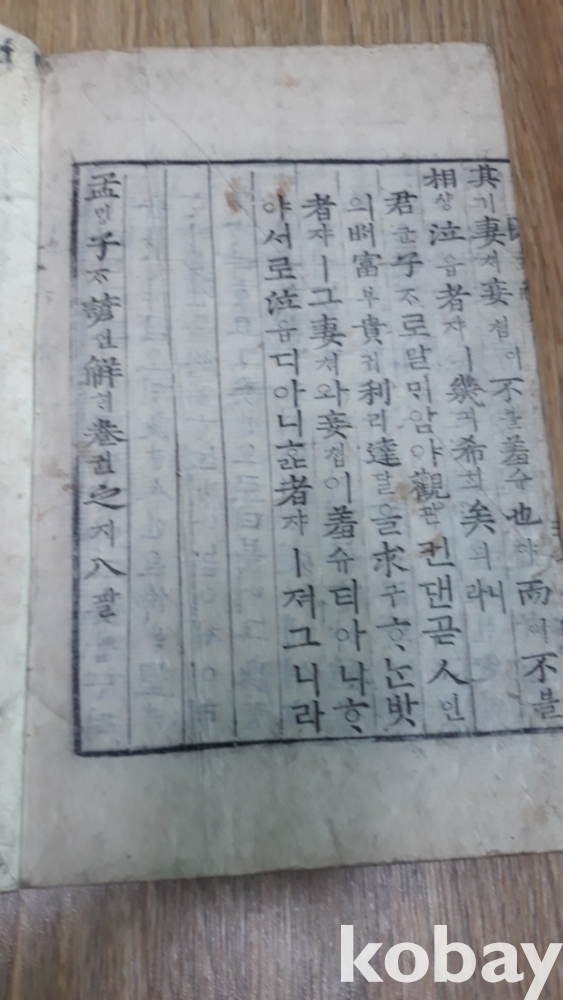 其기妻쳐妾쳡이不블羞슈也야而이不블
相샹泣읍者쟈ㅣ幾긔希희矣의니라
君군子ᄌᆞ로말믜암아觀관컨댄곧人인
의ᄡᅥ富부貴귀利리達달을求구ᄒᆞᄂᆞᆫ밧
者쟈ㅣ그妻쳐와妾쳡이羞슈티아니ᄒᆞ
야서로泣읍디아니ᄒᆞᆯ者쟈ㅣ져그니라
孟ᄆᆡᆼ子ᄌᆞ諺언解ᄒᆡ卷권之지八팔
kobay